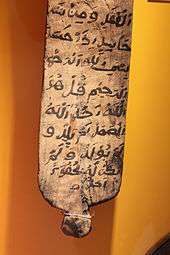 العقد ومن شر
حاسد اذا حسد
بسم الله الرحمن
الرحيم قل هو
الله احد الله
الصمد لم يلد و
لم يولد ولم
يكن له كفوا
احد